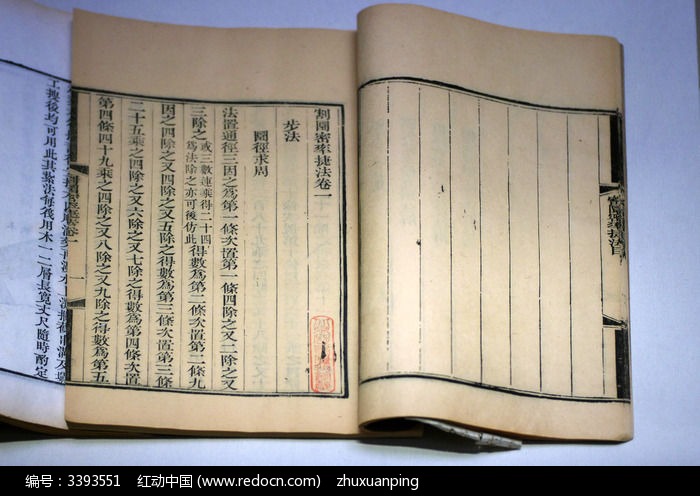 割圜密率捷法卷一
步法
圜徑求周
法置通徑三因之爲第一條次置第一條四除之又二除之又
三除之或三數連乘得二十四爲法除之亦可後仿此得數爲第二條次置第二條九
因之四除之又四除之又五除之得數爲第三條次置第三條
二十五乘之四除之又六除之又七除之得數爲第四條次置
第四條四十九乘之四除之又八除之又九除之得數爲第五
工摶後均可用此其紮法每筏用木一二層長寬丈尺隨時酌定
编号：3393551 红动中国 (www.redocn.com) zhuxuanping